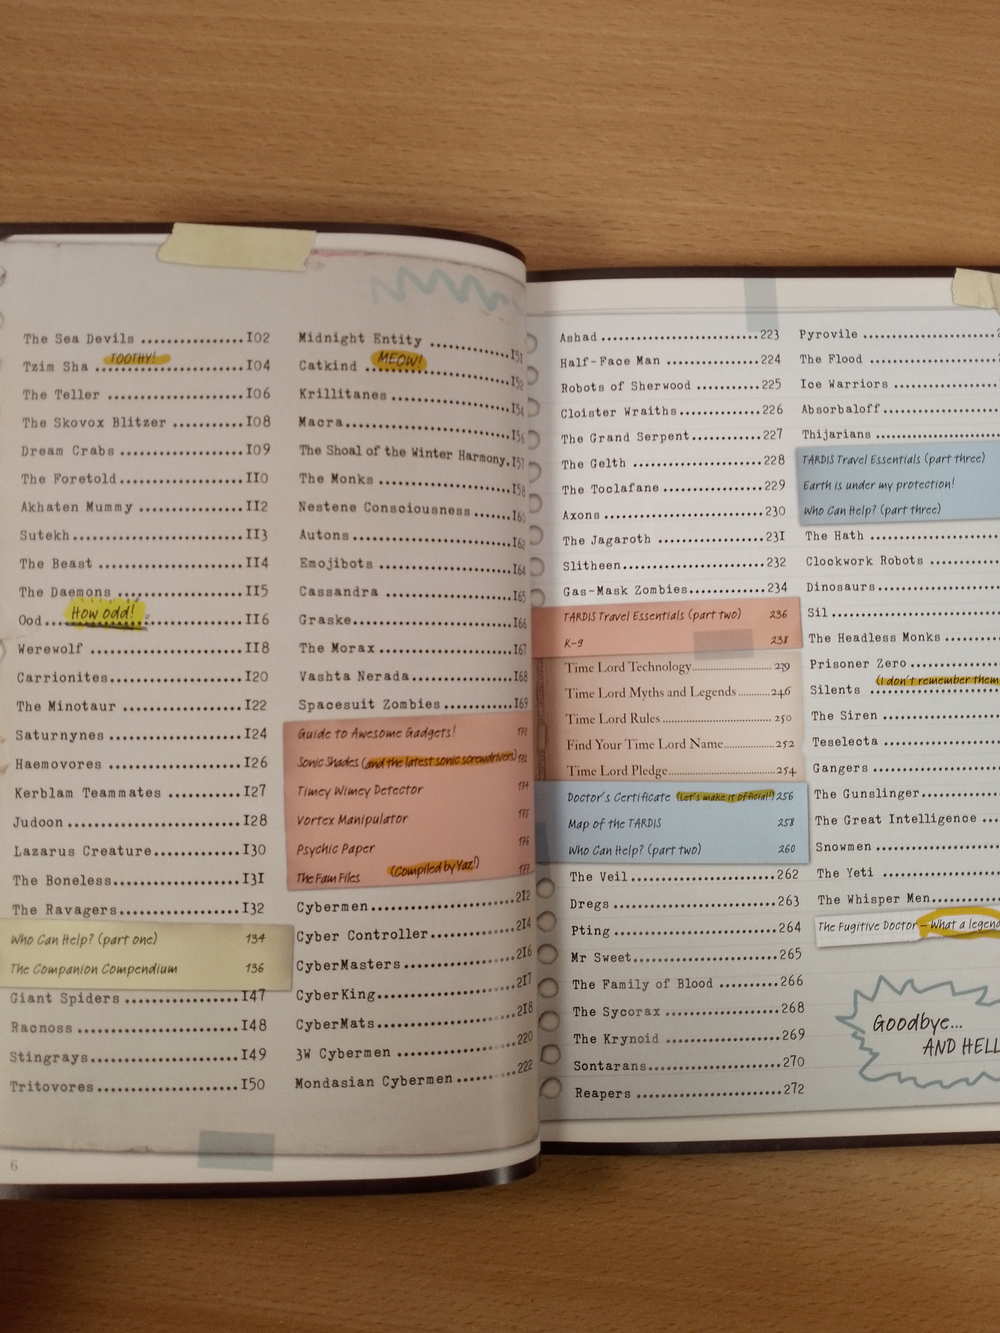 The Sea Devils ..............102
TOOTHY!
Tzim Sha ....................104
The Teller ..................106
The Skovox Blitzer ..........108
Dream Crabs .................109
The Foretold ................110
Akhaten Mummy ...............112
Sutekh ......................113
The Beast ...................114
The Daemons .................115
How odd!
Ood..........................116
Werewolf ....................118
Carrionites..................120
The Minotaur ................122
Saturnynes ..................124
Haemovores ..................126
Kerblam Teammates ...........127
Judoon ......................128
Lazarus Creature.............130
The Boneless.................131
The Ravagers.................132
Who Can Help? (part one) 134
The Companion Compendium 136
Giant Spiders ...............147
Racnoss .....................148
Stingrays....................149
Tritovores...................150
6
Midnight Entity .............151
MEOW!
Catkind .....................152
Krillitanes .................154
Macra........................156
The Shoal of the Winter Harmony.157
The Monks ...................158
Nestene Consciousness .......160
Autons ......................162
Emojibots ...................164
Cassandra ...................165
Graske.......................166
The Morax....................167
Vashta Nerada................168
Spacesuit Zombies............169
Guide to Awesome Gadgets!
Sonic Shades (and the latest sonic screwdrivers)
Timey Wimey Detector 174
Vortex Manipulator 175
Psychic Paper 176
The Fam Files (Compiled by Yaz!) 177
Cybermen.....................212
Cyber Controller.............214
CyberMasters.................216
CyberKing....................217
CyberMats....................218
3W Cybermen .................220
Mondasian Cybermen ..........222
Ashad .......................223
Half-Face Man ...............224
Robots of Sherwood ..........225
Cloister Wraiths.............226
The Grand Serpent............227
The Gelth ...................228
The Toclafane ...............229
Axons .......................230
The Jagaroth ................231
Slitheen ....................232
Gas-Mask Zombies.............234
TARDIS Travel Essentials (part two) 236
K-9 238
Time Lord Technology.............239
Time Lord Myths and Legends..........246
Time Lord Rules..................250
Find Your Time Lord Name.............252
Time Lord Pledge.................254
Doctor's Certificate (Let's make it official!) 256
Map of the TARDIS 258
Who Can Help? (part two) 260
The Veil.....................262
Dregs........................263
Pting........................264
Mr Sweet.....................265
The Family of Blood .........266
The Sycorax .................268
The Krynoid .................269
Sontarans....................270
Reapers .....................272
Pyrovile ....................
The Flood ...................
Ice Warriors ................
Absorbaloff..................
Thijarians ..................
TARDIS Travel Essentials (part three)
Earth is under my protection!
Who Can Help? (part three)
The Hath ....................
Clockwork Robots ............
Dinosaurs....................
Sil..........................
The Headless Monks ..........
Prisoner Zero ...............
(I don't remember them
Silents .....................
The Siren ...................
Teselecta ...................
Gangers......................
The Gunslinger...............
The Great Intelligence ......
Snowmen .....................
The Yeti ....................
The Whisper Men..............
The Fugitive Doctor – What a legend
Goodbye...
AND HELL